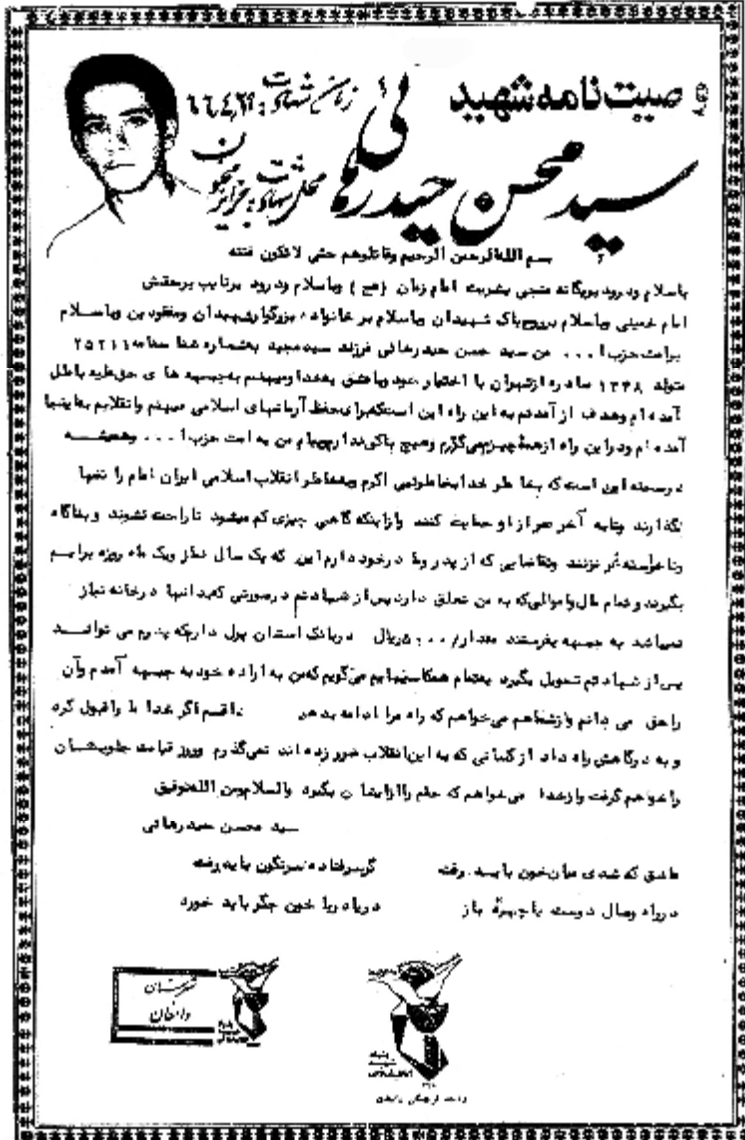 وصیت نامه شهید
سید محسن حیدرهائی
زمان شهادت:
محل شهادت: جزایر مجنون
بسم الله الرحمن الرحیم وقاتلوهم حتی لاتکون فتنه
باسلام ودرود بریگانه منجی بشریت امام زمان (عج) وباسلام ودرود برنایب برحقش
امام خمینی وباسلام برروح پاک شهیدان وباسلام بر خانواده بزرگوارشهیدان ومفقودین وباسلام
برامت حزب ا... من سید حسن حیدرهائی فرزند سیدمجید بشماره شناسنامه ۲۵۲۱۱
متولد ۱۳۴۸ صادره ازتهران با اختیار خود وباعشق بخدا ومیهنم به جبهه های حق علیه باطل
آمده ام وهدف از آمدنم به این راه این است که برای حفظ آرمانهای اسلامی میهنم وانقلابم به اینجا
آمده ام ودراین راه ازهمه چیزم می گذرم وهیچ باکی ندارم پیام من به امت حزب ا... وهمیشه
درصحنه این است که بخاطر خدا بخاطر نبی اکرم وبخاطر انقلاب اسلامی ایران امام را تنها
نگذارند وتابه آخر عمر از او حمایت کنند وازاینکه گاهی چیزی کم میشود ناراحت نشوند وبناگاه
وناخواسته غر نزنند وتقاضایی که از پدر و مادر خود دارم این که یک سال نماز ویک ماه روزه برایم
بگیرند وتمام مال واموالی که به من تعلق دارد پس از شهادتم درصورتی که بدانها درخانه نیاز
نمیباشد به جبهه بفرستند مقدار ریال دربانک استان پول دارم که پدرم می تواند
پس از شهادتم تحویل بگیرد بتمام همکلاسیهایم می گویم که من به اراده خود به جبهه آمدم وآن
راحق می دانم وازشما هم می خواهم که راه مرا ادامه بدهید اگر خدا ما راقبول کرد
و به درگاهش راه داد از کسانی که به این انقلاب ضرر زده اند نمی گذرم وروز قیامت جلویشان
راخواهم گرفت وازخدا می خواهم که حقم راازایشان بگیرد والسلام ومن الله توفیق
سید محسن حیدرهائی
عاشق که شدی میان خون باید رفت
گرسرفتاده سرنگون باید رفت
درراه وصال دوست باچهره باز
دریا دریا خون جگر باید خورد
شهرستان
دامغان